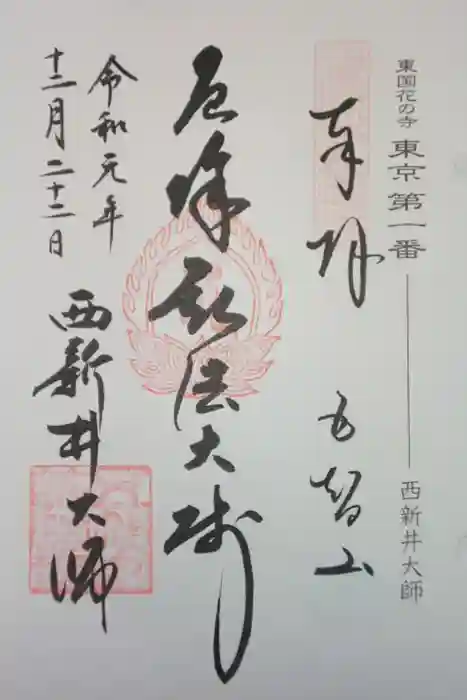 東国花の寺 東京第一番 西新井大師
奉拝 五智山
厄除 弘法大師
令和元年
十二月二十二日
西新井大師